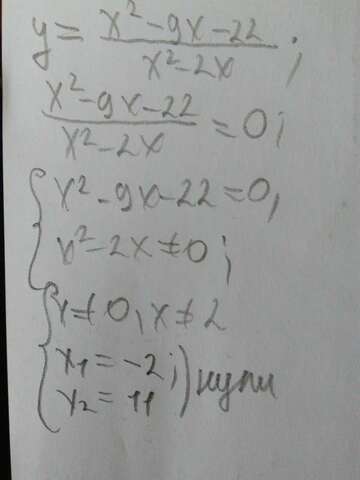 y = (x² - 9x - 22)/(x² - 2x) ;
(x² - 9x - 22)/(x² - 2x) = 0 ;
{ x² - 9x - 22 = 0,
x² - 2x ≠ 0 ;
{ x ≠ 0, x ≠ 2
x₁ = -2 ; ) нули
x₂ = 11